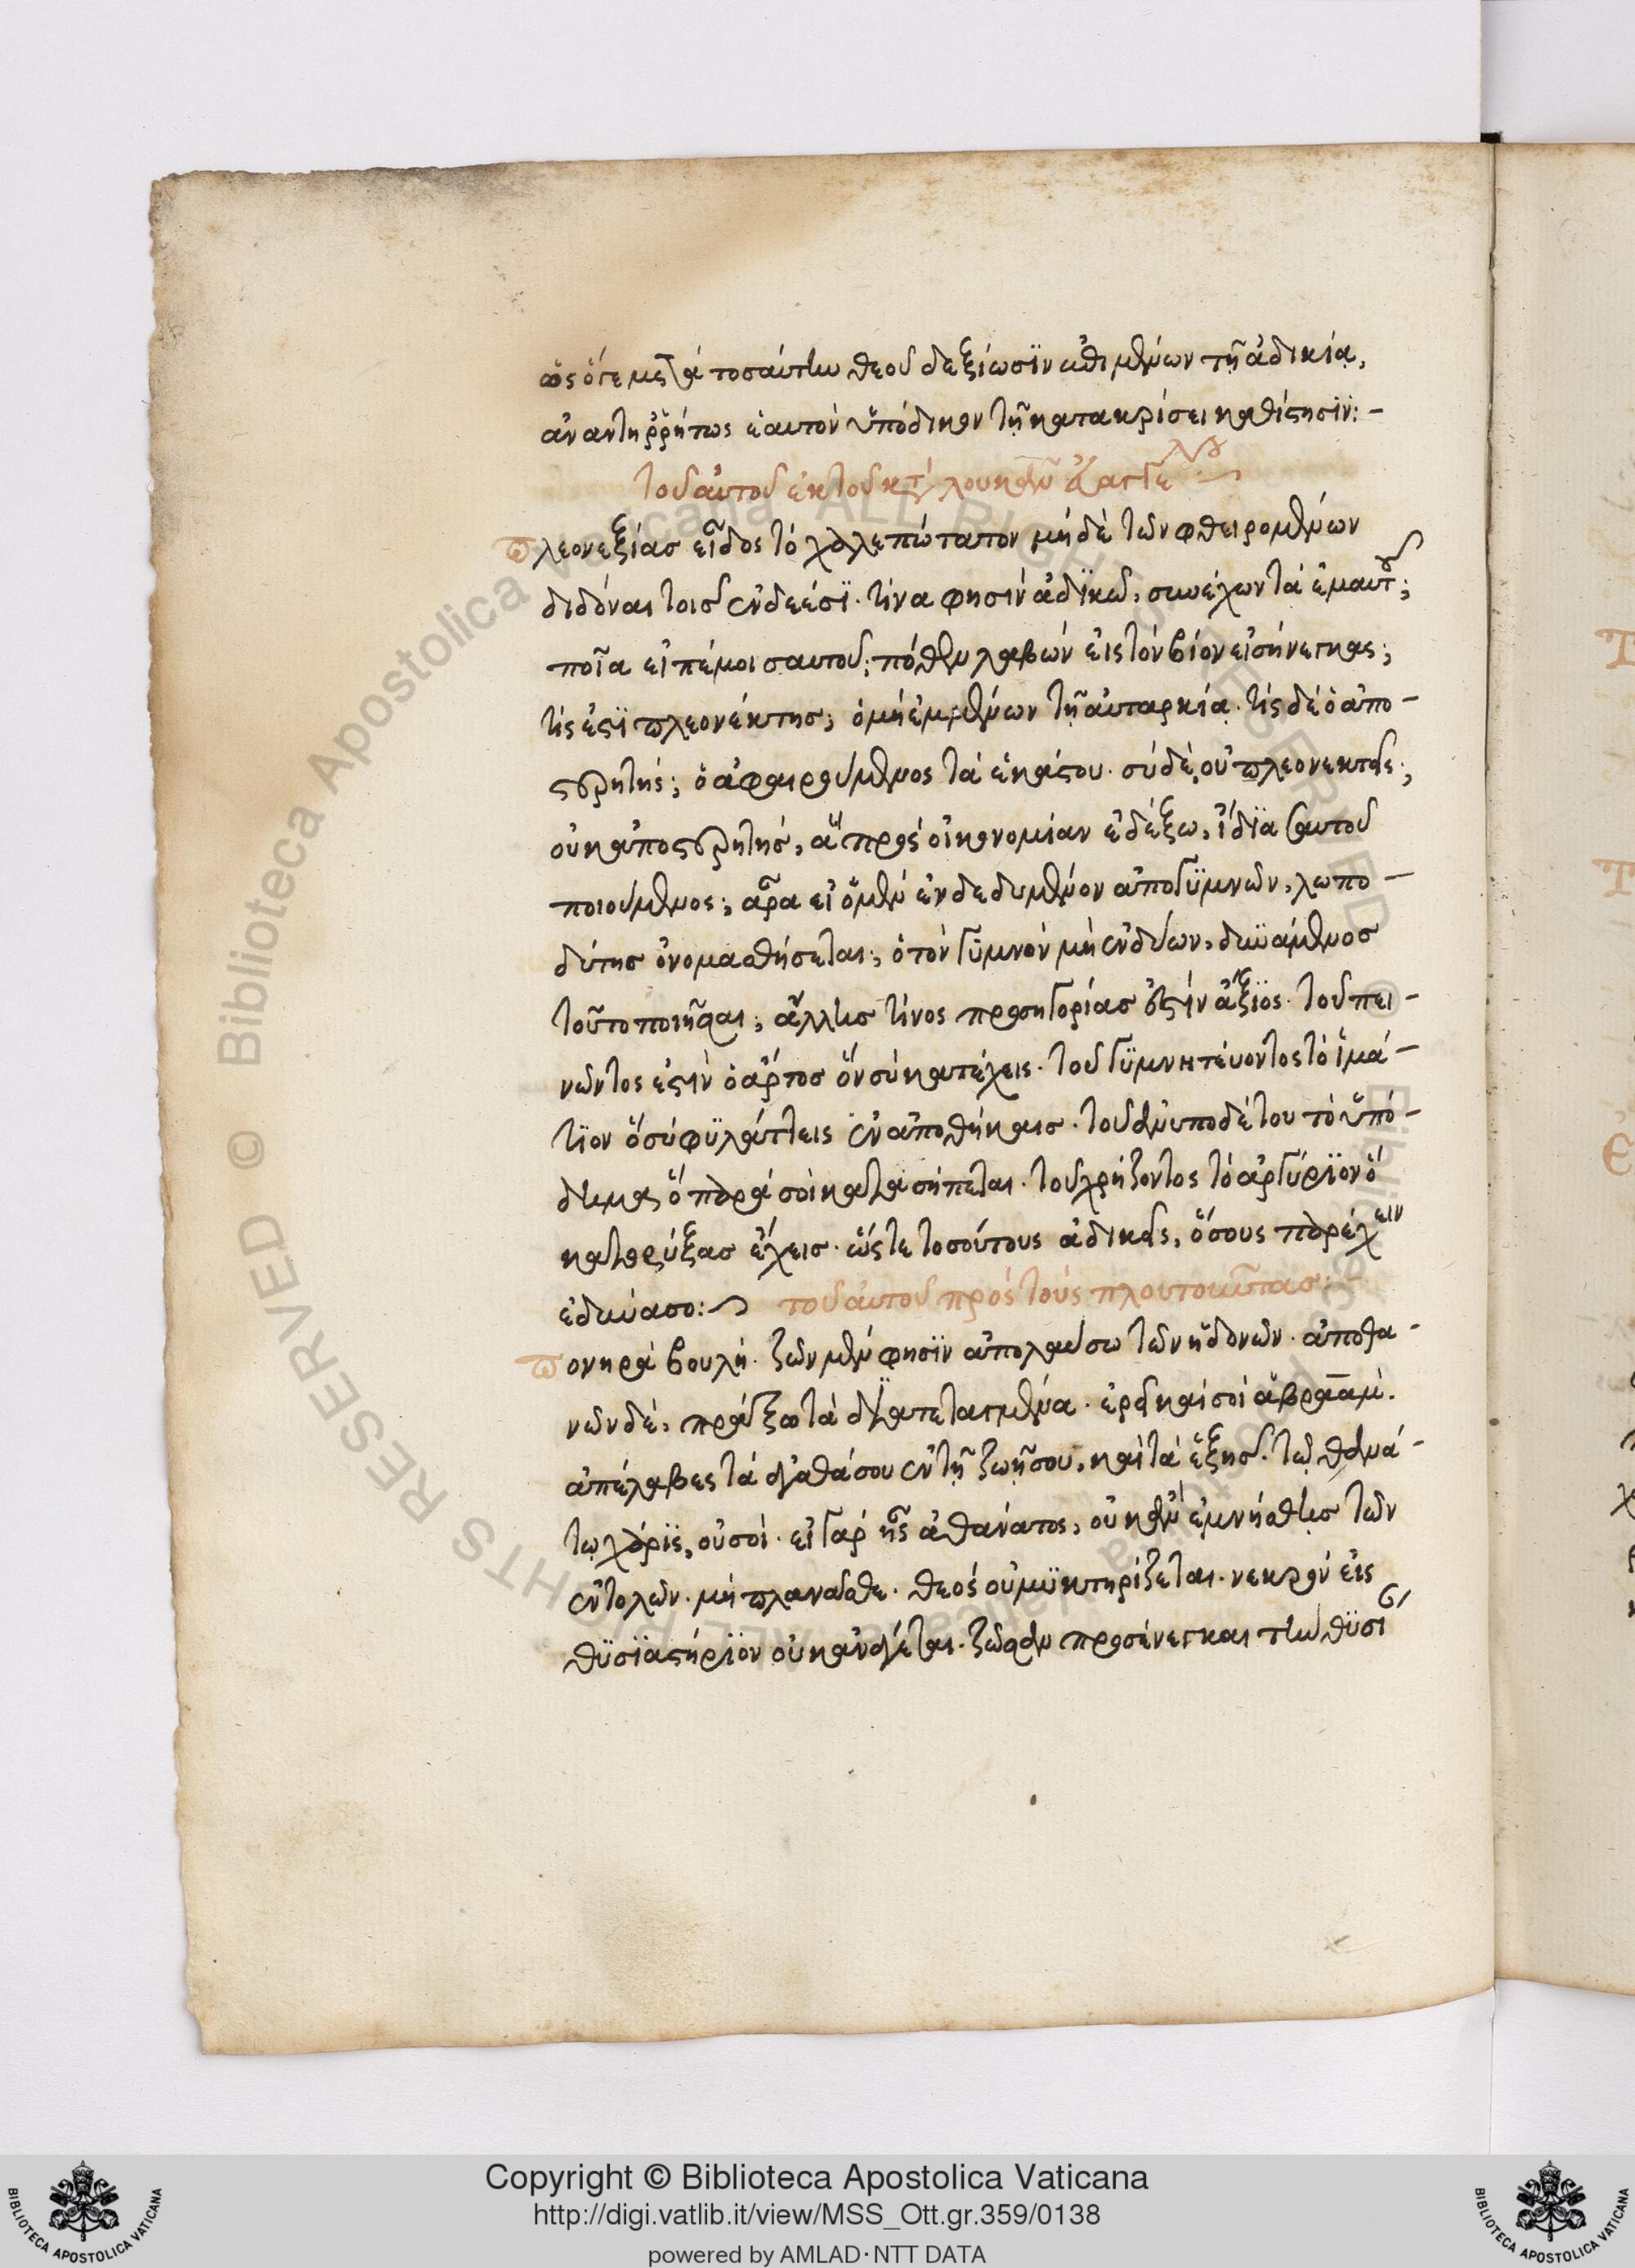 ὡς ὅτε μετὰ τοσαύτην θεοῦ δεξίωσϊν ἐπιμένων τῇ ἀδικίᾳ,
ἀναντηῤῥήτως ἑαυτὸν ὑπόδικον τῇ κατακρίσει καθίστησϊν:-
τοῦ αὐτοῦ ἐκ τοῦ
πλεονεξίας εἶδος τὸ χαλεπώτατον μηδὲ τῶν φθειρομένων
διδόναι τοῖς ἐνδεέσϊ. τίνα φησὶν ἀδϊκῶ, συνέχων τὰ ἐμαυτοῦ;
ποῖα εἰπέ μοι σαυτοῦ; πόθεν λαβὼν εἰς τὸν βίον εἰσήνεγκας;
τίς ἐστϊ πλεονέκτης; ὁ μὴ ἐμμένων τῇ αὐταρκίᾳ. τίς δὲ ὁ ἀπο-
στερητής; ὁ ἀφαιρούμενος τὰ ἑκάστου. σὺ δὲ, οὐ πλεονέκτης;
οὐκ ἀποστερητής, ἃ πρὸς οἰκονομίαν ἐδέξω, ἴδϊα ἑαυτοῦ
ποιούμενος; ἆρα εἰ ὁ μὲν ἐνδεδυμένον ἀπογϋμνῶν, λωπο-
δύτης ὀνομασθήσεται; ὁ τὸν γϋμνὸν μὴ ἐνδύων, δυνάμενος
τοῦτο ποιῆσαι; ἄλλης τίνος προσηγορίας ἐστὶν ἄξϊος. τοῦ πει-
νῶντος ἐστὶν ὁ ἄρτος ὃν σὺ κατέχεις. τοῦ γϋμνητεύοντος τὸ ἱμά-
τϊον ὃ σὺ φϋλάττεις ἐν ἀποθήκαις. τοῦ ἀνυποδέτου τὸ ὑπό-
δημα ὃ παρὰ σοὶ κατασήπεται. τοῦ χρήζοντος τὸ ἀργύρϊον ὃ
κατορύξας ἔχεις. ὥστε τοσούτους ἀδικεῖς, ὅσους παρέχειν
ἐδύνασο:~ τοῦ αὐτοῦ πρὸς τοὺς πλουτοῦντας:-
πονηρὰ βουλή. ζῶν μὲν φησϊν ἀπολαύσω τῶν ἡδονῶν. ἀποθα-
νὼν δὲ, πράξω τὰ διατεταγμένα. ἐρεῖ καί σοι ἀβραάμ.
ἀπέλαβες τὰ ἀγαθά σου ἐν τῇ ζωῇ σου, καὶ τὰ ἑξῆς. τῷ θανά-
τῳ χάρϊς, οὐ σοί. εἰ γὰρ ἦς ἀθάνατος, οὐκ ἂν ἐμνήσθης τῶν
ἐντολῶν. μὴ πλανᾶσθε. θεὸς οὐ μϋκτηρίζεται. νεκρὸν εἰς
θϋσϊαστήρϊον οὐκ ἀνάγεται. ζῶσαν προσένεγκαι τὴν θϋσί
Copyright © Biblioteca Apostolica Vaticana
http://digi.vatlib.it/view/MSS_Ott.gr.359/0138
powered by AMLAD·NTT DATA
BIBLIOTECA APOSTOLICA VATICANA
BIBLIOTECA APOSTOLICA VATICANA